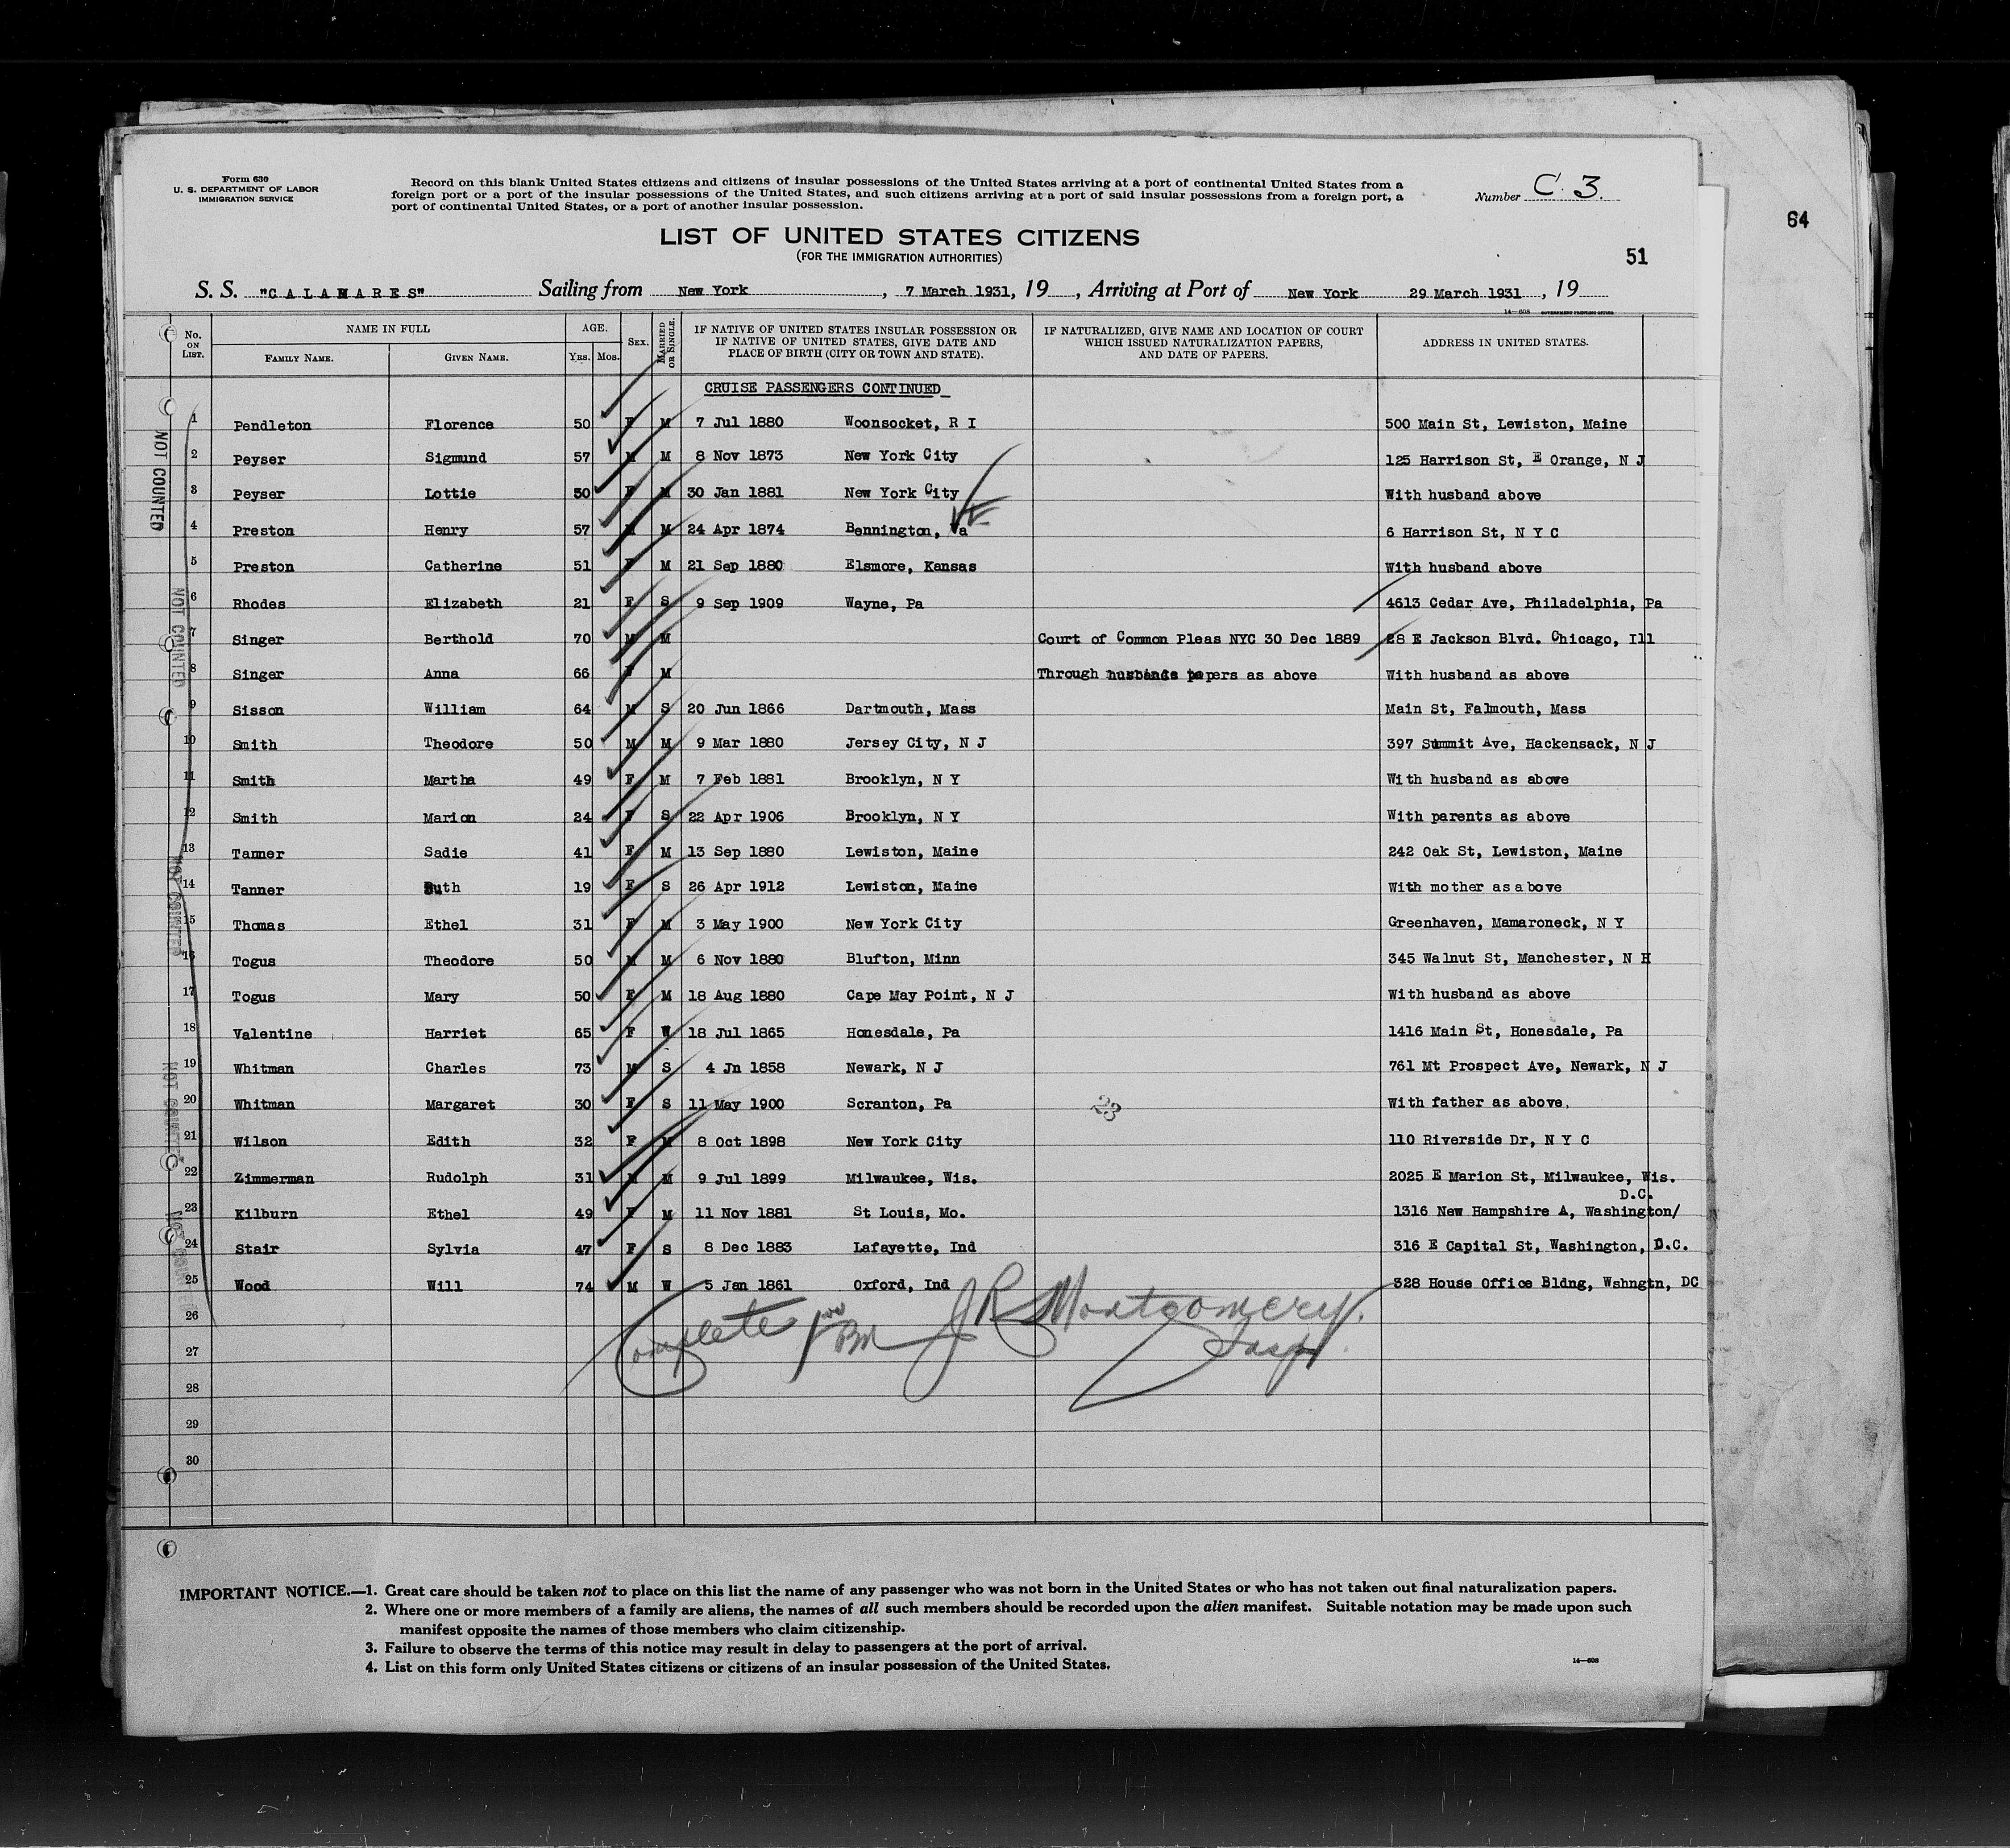 Form 630
U. S. DEPARTMENT OF LABOR
IMMIGRATION SERVICE
Record on this blank United States citizens and citizens of insular possessions of the United States arriving at a port of continental United States from a
foreign port or a port of the insular possessions of the United States, and such citizens arriving at a port of said insular possessions from a foreign port, a
port of continental United States, or a port of another insular possession.
Number C. 3.
64
LIST OF UNITED STATES CITIZENS
(FOR THE IMMIGRATION AUTHORITIES)
51
S. S. "CALAMARES" Sailing from New York, 7 March 1931, 19, Arriving at Port of New York 29 March 1931, 19
14—608 GOVERNMENT PRINTING OFFICE
No. ON LIST. NAME IN FULL FAMILY NAME. GIVEN NAME. AGE. YRS. MOS. SEX. MARRIED OR SINGLE. IF NATIVE OF UNITED STATES INSULAR POSSESSION OR IF NATIVE OF UNITED STATES, GIVE DATE AND PLACE OF BIRTH (CITY OR TOWN AND STATE). IF NATURALIZED, GIVE NAME AND LOCATION OF COURT WHICH ISSUED NATURALIZATION PAPERS, AND DATE OF PAPERS. ADDRESS IN UNITED STATES.
CRUISE PASSENGERS CONTINUED
NOT COUNTED
1 Pendleton Florence 50 F M 7 Jul 1880 Woonsocket, R I 500 Main St, Lewiston, Maine
2 Peyser Sigmund 57 M M 8 Nov 1873 New York City 125 Harrison St, E Orange, N J
3 Peyser Lottie 50 F M 30 Jan 1881 New York City With husband above
4 Preston Henry 57 M M 24 Apr 1874 Bennington, Va 6 Harrison St, N Y C
5 Preston Catherine 51 F M 21 Sep 1880 Elsmore, Kansas With husband above
NOT COUNTED
6 Rhodes Elizabeth 21 F S 9 Sep 1909 Wayne, Pa 4613 Cedar Ave, Philadelphia, Pa
7 Singer Berthold 70 M M Court of Common Pleas NYC 30 Dec 1889 28 E Jackson Blvd. Chicago, Ill
8 Singer Anna 66 F M Through husbands papers as above With husband as above
9 Sisson William 64 M S 20 Jun 1866 Dartmouth, Mass Main St, Falmouth, Mass
10 Smith Theodore 50 M M 9 Mar 1880 Jersey City, N J 397 Summit Ave, Hackensack, N J
11 Smith Martha 49 F M 7 Feb 1881 Brooklyn, N Y With husband as above
12 Smith Marion 24 F S 22 Apr 1906 Brooklyn, N Y With parents as above
13 Tanner Sadie 41 F M 13 Sep 1880 Lewiston, Maine 242 Oak St, Lewiston, Maine
NOT COUNTED
14 Tanner Ruth 19 F S 26 Apr 1912 Lewiston, Maine With mother as above
15 Thomas Ethel 31 F M 3 May 1900 New York City Greenhaven, Mamaroneck, N Y
16 Togus Theodore 50 M M 6 Nov 1880 Blufton, Minn 345 Walnut St, Manchester, N H
17 Togus Mary 50 F M 18 Aug 1880 Cape May Point, N J With husband as above
18 Valentine Harriet 65 F W 18 Jul 1865 Honesdale, Pa 1416 Main St, Honesdale, Pa
19 Whitman Charles 73 M S 4 Jn 1858 Newark, N J 761 Mt Prospect Ave, Newark, N J
NOT COUNTED
20 Whitman Margaret 30 F S 11 May 1900 Scranton, Pa 23 With father as above.
21 Wilson Edith 32 F M 8 Oct 1898 New York City 110 Riverside Dr, N Y C
22 Zimmerman Rudolph 31 M M 9 Jul 1899 Milwaukee, Wis. 2025 E Marion St, Milwaukee, Wis.
D.C.
23 Kilburn Ethel 49 F M 11 Nov 1881 St Louis, Mo. 1316 New Hampshire A, Washington/
24 Stair Sylvia 47 F S 8 Dec 1883 Lafayette, Ind 316 E Capital St, Washington, D.C.
NOT COUNTED
25 Wood Will 74 M W 5 Jan 1861 Oxford, Ind 328 House Office Bldng, Wshngtn, DC
26 Complete J R Montgomery.
27 Insp.
28
29
30
IMPORTANT NOTICE.—1. Great care should be taken not to place on this list the name of any passenger who was not born in the United States or who has not taken out final naturalization papers.
2. Where one or more members of a family are aliens, the names of all such members should be recorded upon the alien manifest. Suitable notation may be made upon such
manifest opposite the names of those members who claim citizenship.
3. Failure to observe the terms of this notice may result in delay to passengers at the port of arrival.
4. List on this form only United States citizens or citizens of an insular possession of the United States.
14—608